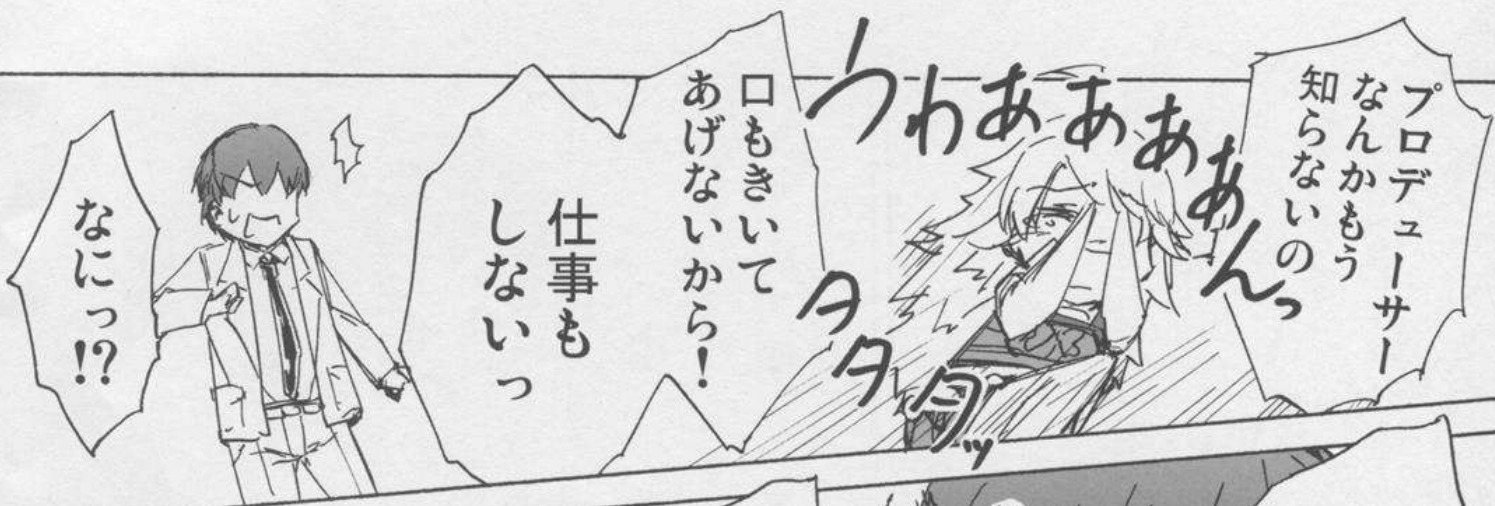 プロデューサー
なんかもう
知らないの
うわああああんっ
タタタッ
口もきいて
あげないから!
仕事も
しないっ
なにっ!?